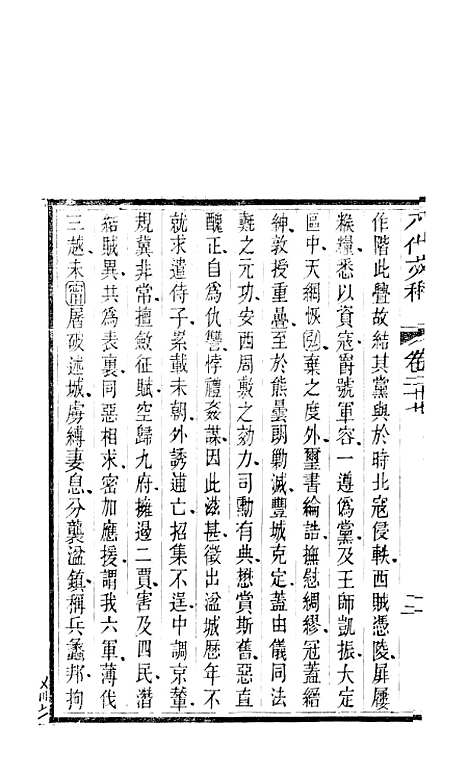 八代文鈔 卷二十七 二
作階此疊故結其黨與於時北寇侵軼西賊憑陵屝屨
糇糧悉以資寇爵號軍容一遵僞黨及王師凱振大定
區中天網恢弘棄之度外璽書綸誥撫慰綢繆冠蓋縉
紳敦授重疊至於熊曇朗勦滅豐城克定蓋由儀同法
𣰰之元功安西周敷之効力司勳有典懋賞斯舊惡直
醜正自爲仇讐悖禮姦謀因此滋甚徵出湓城歷年不
就求遣侍子累載未朝外誘逋亡招集不逞中調京輦
規冀非常擅斂征賦空歸九府擁過二賈害及四民潛
結賊異共爲表裏同惡相求密加應援謂我六軍薄伐
三越未寧屠破述城虜縛妻息分襲湓鎮稱兵蠡邦拘